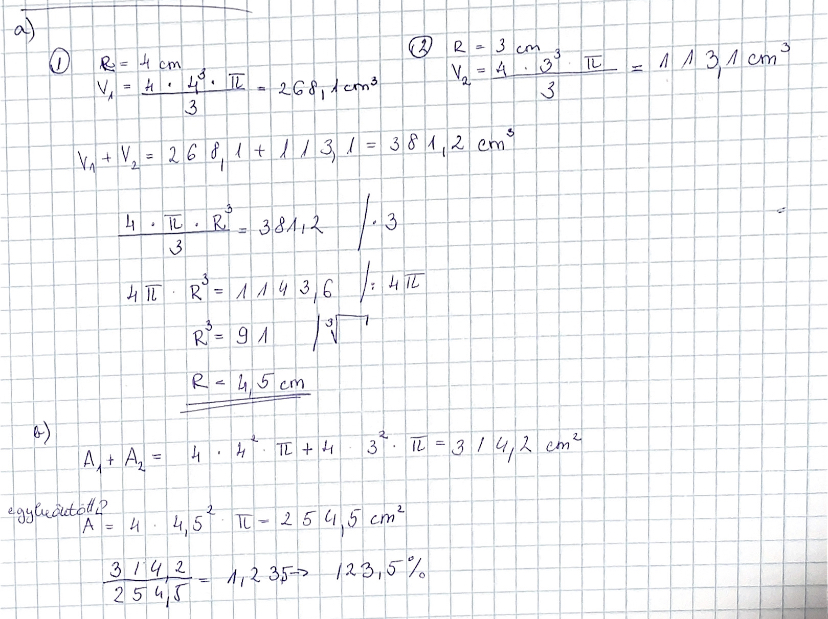 a)
① R = 4 cm
V₁ = (4 · 4³ · π)/3 = 268,1 cm³
② R = 3 cm
V₂ = (4 · 3³ · π)/3 = 113,1 cm³
V₁ + V₂ = 268,1 + 113,1 = 381,2 cm³
(4 · π · R³)/3 = 381,2 /· 3
4π · R³ = 1143,6 /: 4π
R³ = 91 /∛
R = 4,5 cm
b)
A₁ + A₂ = 4 · 4² · π + 4 · 3² · π = 314,2 cm²
A = 4 · 4,5² · π = 254,5 cm²
314,2/254,5 = 1,235 → 123,5%